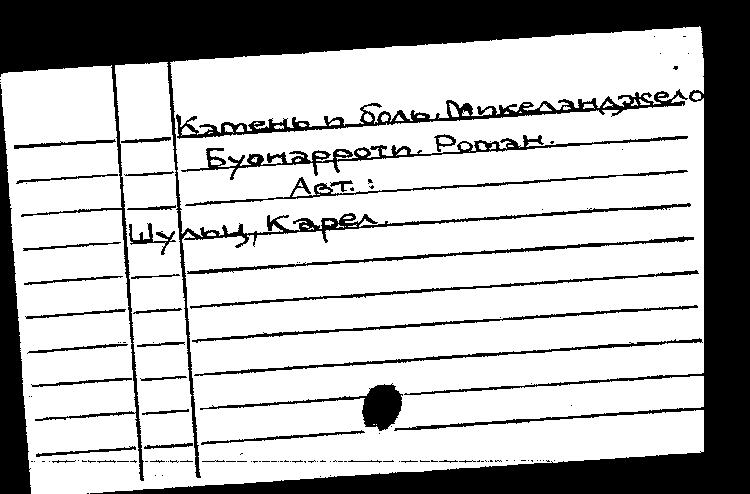 Камень и боль. Микеланджело
Буонарроти. Роман.
Авт.:
Шульц, Карел.